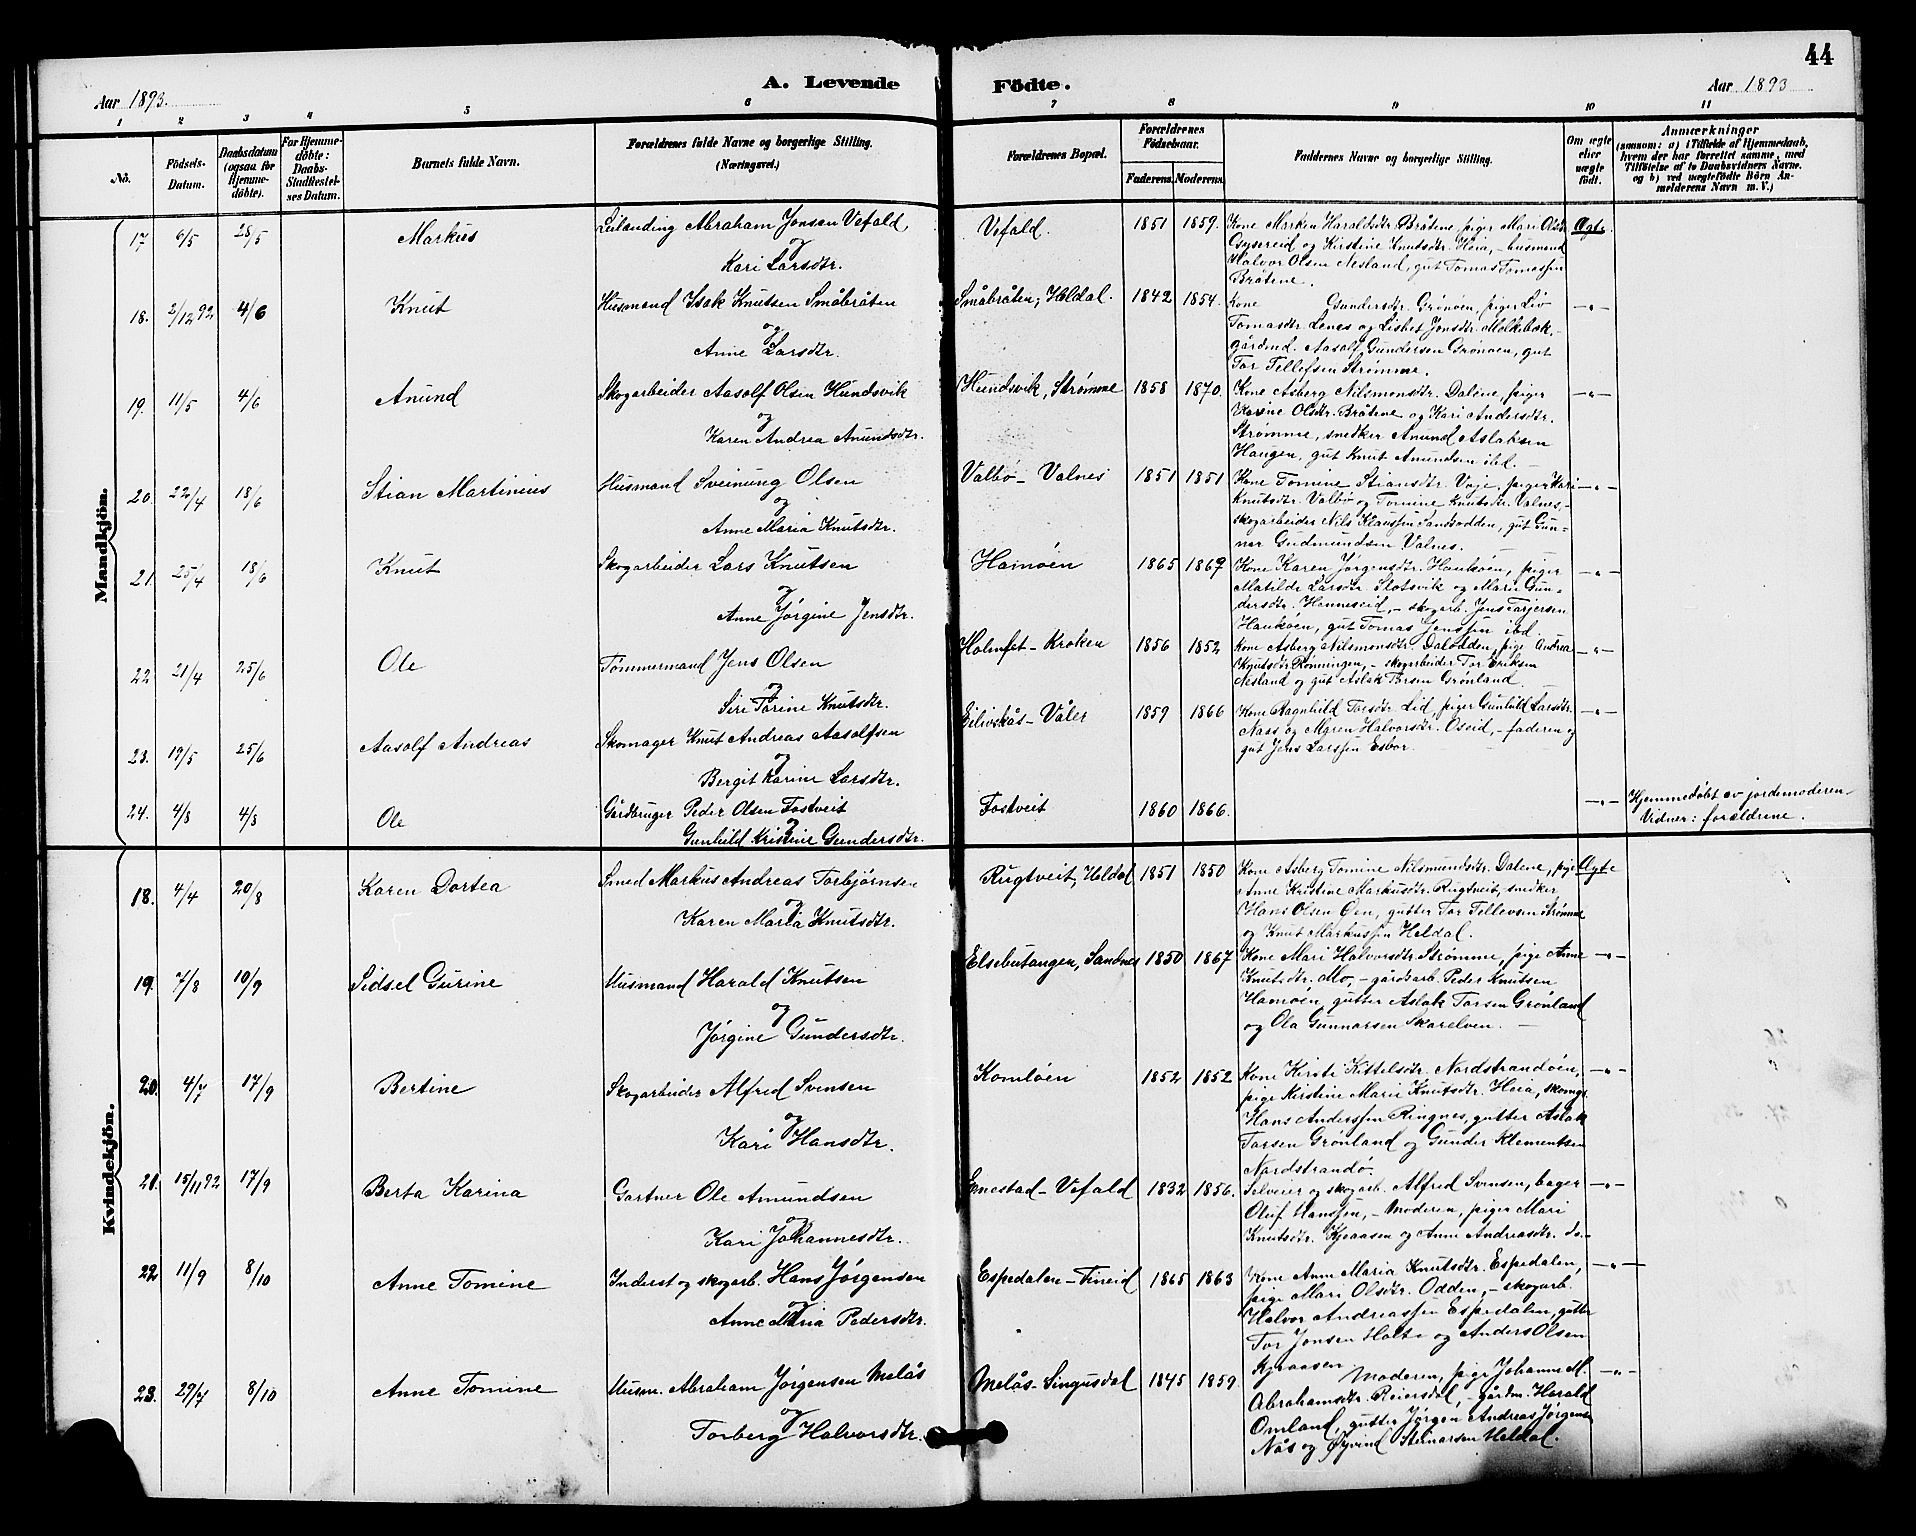 44
A. Levende Födte.
Aar 1893.
Aar 1893
1 2 3 4 5 6 7 8 9 10 11
No.
Födsels-Datum.
Daabsdatum (ogsaa for Hjemme-döbte).
For Hjemme-döbte: Daabs-Stadfæstel-ses Datum.
Barnets fulde Navn.
Forældrenes fulde Navne og borgerlige Stilling. (Næringsvei.)
Forældrenes Bopæl.
Forældrenes Födselsaar.
Faderens. Moderens.
Faddernes Navne og borgerlige Stilling.
Om ægte eller uægte födt.
Anmærkninger
(saasom: a) i Tilfælde af Hjemmedaab, hvem der har forrettet samme, med Tilföielse af to Daabsvidners Navne. og b) ved uægtefödte Börn An-melderens Navn m. V.)
Mandkjön.
17 6/5 28/5 Markus Leilending Abraham Jonsen Vefald og Kari Larsdtr. Vefald. 1851 1859. Kone Marken Haraldsdtr. Bråtene, piger Mari Olsdtr. Ægte.
Gysereid og Kirstine Knutsdtr. Heia, – husmand
Halvor Olsen Nesland, gut Tomas Tomassen
Bråtene.
18. 2/12 92 4/6 Knut Husmand Isak Knutsen Småbråten og Anne Larsdtr. Småbråten, Heldal. 1842 1854. Kone Gundersdtr. Grønøen, piger Liv —"—
Tomasdtr. Lenes og Lisbet Jonsdtr. Molkebæk, –
gårdmd. Aasolf Gundersen Grønøen, gut
Tor Tellefsen Strømme.
19. 11/5 4/6 Anund Skogarbeider Aasolf Olsen Hundsvik og Karen Andrea Anundsdtr. Hundsvik, Strømme 1858 1870. Kone Asberg Nilsmonsdtr. Dalene, piger —"—
Karine Olsdtr. Bråtene og Kari Andersdtr.
Strømme, snedker Anund Aslaksen
Haugen, gut Knut Amundsen ibd. –
20. 22/4 18/6 Stian Martinius Husmand Sveinung Olsen og Anne Maria Knutsdtr. Valbø – Valnes 1851 1851 Kone Tomine Stiansdtr. Vaje, piger Kari —"—
Knutsdtr. Valbø og Tomine Knutsdtr. Valnes, –
skogarbeider Nils Klaussen Sandsodden, gut Gun-
nar Gudmundsen Valnes. –
21. 25/4 18/6 Knut Skogarbeider Lars Knutsen og Anne Jørgine Jensdtr. Hamøen 1865 1869 Kone Karen Jørgensdtr. Haukøen, piger —"—
Matilde Larsdtr. Slotsvik og Mari Gun-
dersdtr. Henneseid, – skogarb. Jens Tarjersen
Haukøen, gut Tomas Jenssen ibd.
22 21/4 25/6 Ole Tømmermand Jens Olsen og Siri Torine Knutsdtr. Holmfet – Kroken 1856 1852 Kone Asberg Nilsmonsdtr. Dalodden, pige Andrea —"—
Knutsdtr. Rønningen, – skogarbeider Tor Eriksen
Nesland og gut Aslak Torsen Grønland.
23. 19/5 25/6 Aasolf Andreas Skomager Knut Andreas Aasolfsen og Bergit Karine Larsdtr. Eilivskås – Våler 1859 1866 Kone Ragnhild Torsdtr. Lid, piger Gunhild Larsdtr. —"—
Nass og Mgren Halvorsdtr. Oseid, – faderen og
gut Jens Larssen Esbor.
24. 4/8 4/8 Ole Gårdbruger Peder Olsen Tostveit og Gunhild Kristine Gundersdtr. Tostveit 1860 1866. —"— Hjemmedøbt av jordemoderen –
Vidner: forældrene.
Kvindekjön.
18. 4/4 20/8 Karen Dortea Smed Markus Andreas Torbjørnsen og Karen Maria Knutsdtr. Rugtveit, Heldal 1851 1850 Kone Asberg Tomine Nilsmundsdtr. Dalene, pige Ægte
Anne Kristine Markusdtr. Rugtveit, smedker
Hans Olsen Øen, gutter Tor Tellevsen Strømme
og Knut Markussen Heldal.
19. 7/8 10/9 Sidsel Gurine Husmand Harald Knutsen og Jørgine Gundersdtr. Elsebutangen, Sandnes 1850 1867 Kone Mari Halvorsdtr. Strømme, pige Anne —"—
Knutsdtr. Mo, – gårdsarb. Peder Knutsen
Hamøen, gutter Aslak Torsen Grønland
og Ola Gunnarsen Skarelven. –
20. 4/7 17/9 Bertine Skogarbeider Alfred Svensen og Kari Hansdtr. Komløen 1852 1852 Kone Kirsti Kittelsdtr. Nordstrandøen, —"—
pige Kirstine Marie Knutsdtr. Heia, skomgr.
Hans Anderssen Ringnes, gutter Aslak
Torsen Grønland og Gunder Klementsen
Nordstrandø.
21. 15/11 92 17/9 Berta Karina Gartner Ole Amundsen og Kari Johannesdtr. Ennestad – Vefald 1832 1856. Selveier og skogarb. Alfred Svensen, bager —"—
Oluf Hanssen, – Moderen, piger Mari
Knutsdtr. Kjraasen og Anne Andreasdtr. do. –
22 11/9 8/10 Anne Tomine Inderst og skogarb. Hans Jørgensen og Anne Maria Pedersdtr. Espedalen – Fineid 1865 1863 Kone Anne Maria Knutsdtr. Espedalen, —"—
pige Mari Olsdtr. Odden, – skogarb.
Halvor Andreassen Espedalen, gutter
Tor Jonsen Holte og Anders Olsen
Kjraasen
23. 29/7 8/10 Anne Tomine Husm. Abraham Jørgensen Melås og Torberg Halvorsdtr. Melås – Singusdal 1845 1859 Moderen, pige Johanne M. —"—
Abrahamsdtr. Reiersdal, – gårdm. Harald
Omland, gutter Jørgen Andreas Jørgensen
Nås og Øyvind Steinarsen Heldal.